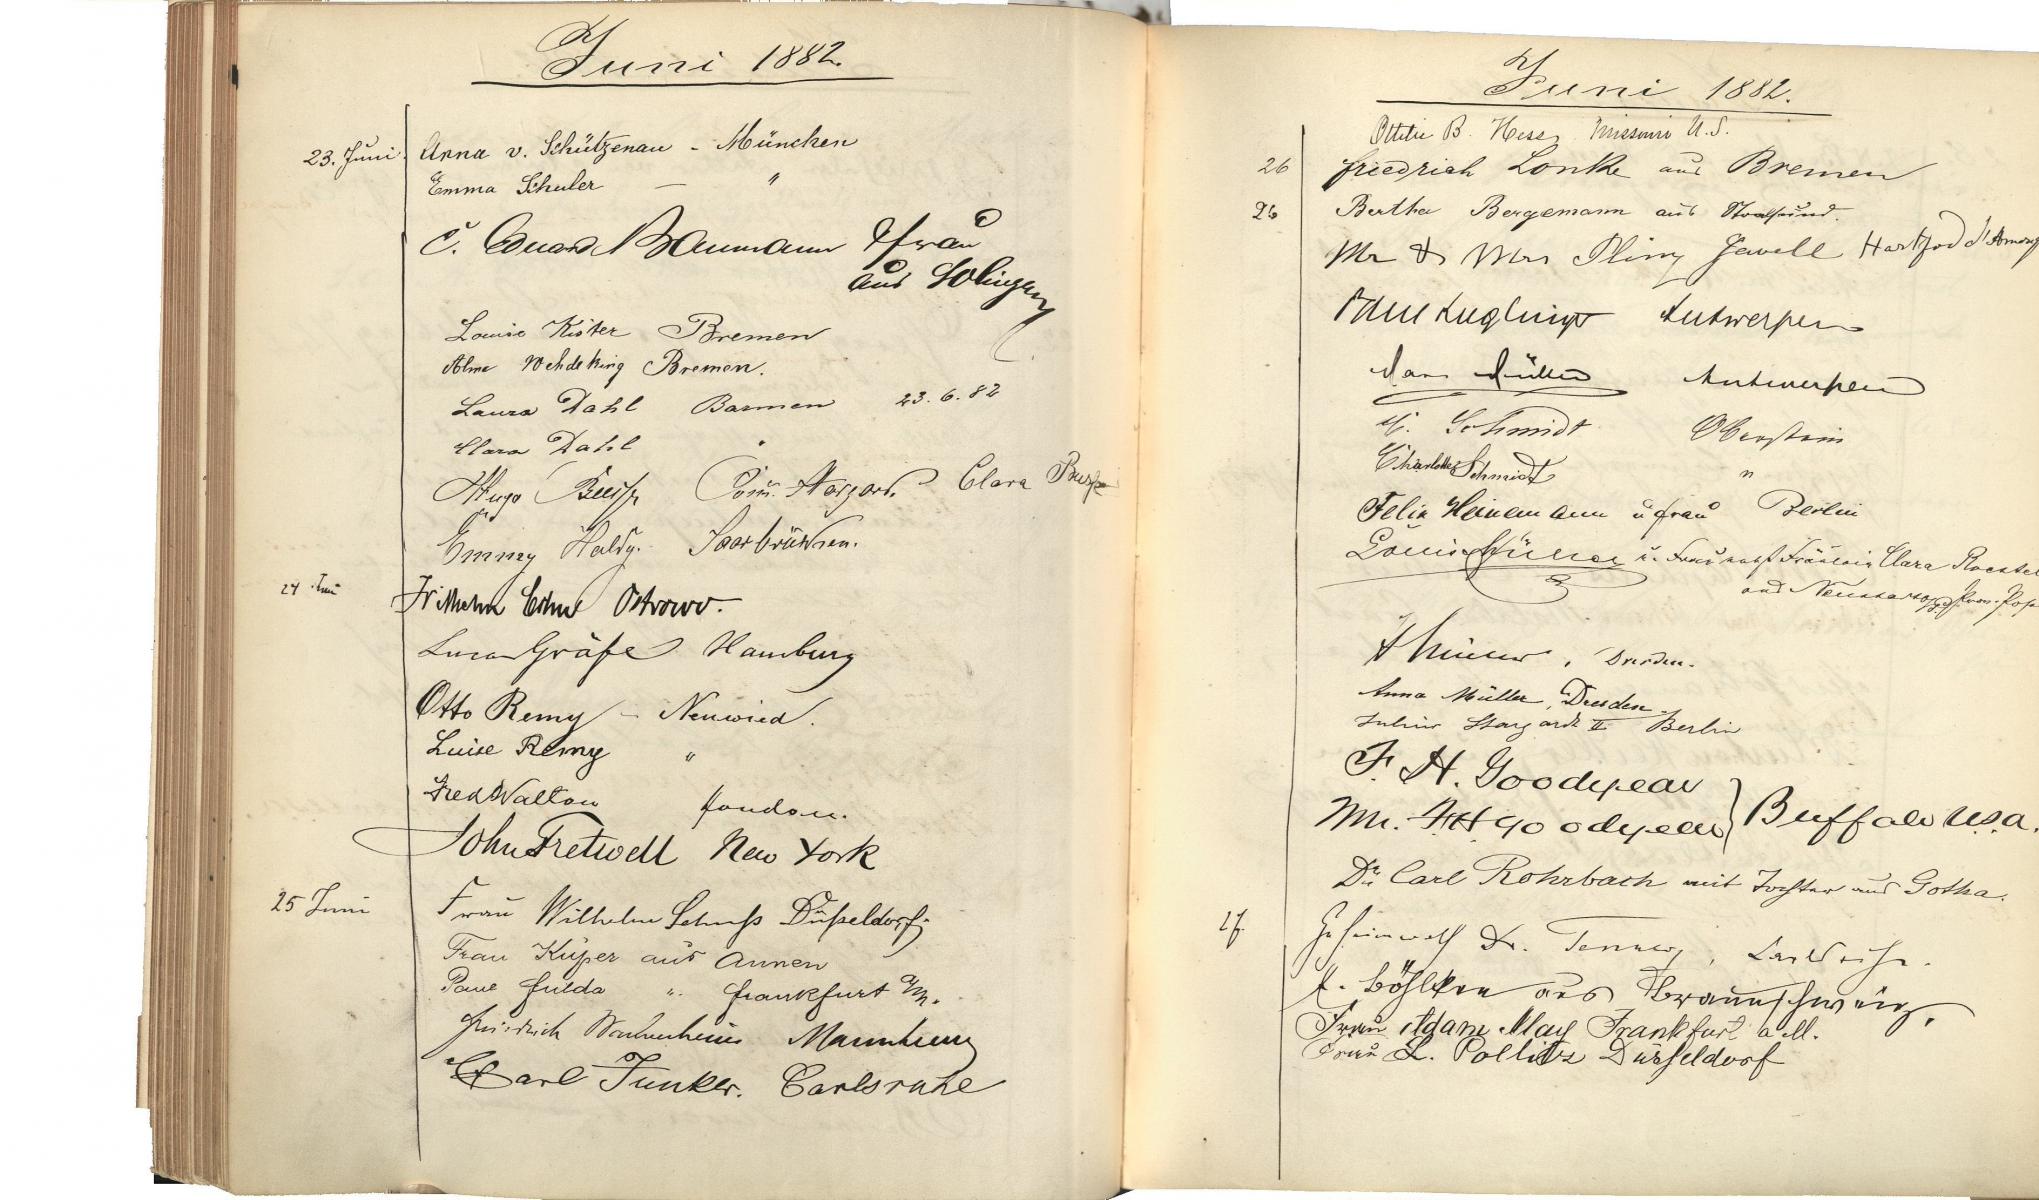 Juni 1882.
23. Juni. Anna v. Schützenau - München
Emma Schuler — "
C. Eduard Baumann & Frau
aus Solingen
Louise Köster Bremen
Alma Wehdeking Bremen.
Laura Dahl Barmen 23. 6. 82
Clara Dahl "
Hugo Clara
Emmy Saarbrücken.
24 Juni Wilhelm Ostrowo.
Gräfe Hamburg
Otto Remy - Neuwied.
Luise Remy "
Fred Walton London.
John Fretwell New York
25 Juni Frau Wilhelm Schuss Düsseldorf.
Frau Küper aus Annen
Paul Fulda ". Frankfurt a/M.
Friedrich Wachenheim Mannheim
Carl Junker. Carlsruhe
Juni 1882.
Ottilie B. Hess, Missouri U.S.
26 Friedrich Lonke aus Bremen
26 Bertha Bergemann aus Stralsund.
Mr & Mrs Pliny Jewell Hartford
Antwerpen
Müller Antwerpen
Schmidt Oberstein
Charlotte Schmidt "
Felix Heinemann u Frau Berlin
Louis Müller u. Frau nebst Fräulein Clara
aus
Dresden.
Anna Müller, Dresden.
Julius Stargardt II Berlin
F. H. Goodyear
Mrs. F H Goodyear } Buffalo U.S.a.
Dr. Carl Rohrbach mit Tochter aus Gotha.
27. Geheimrath Dr.
Böhlken aus Braunschweig.
Frau Adam May Frankfurt a M.
Frau L. Pollitz Düsseldorf